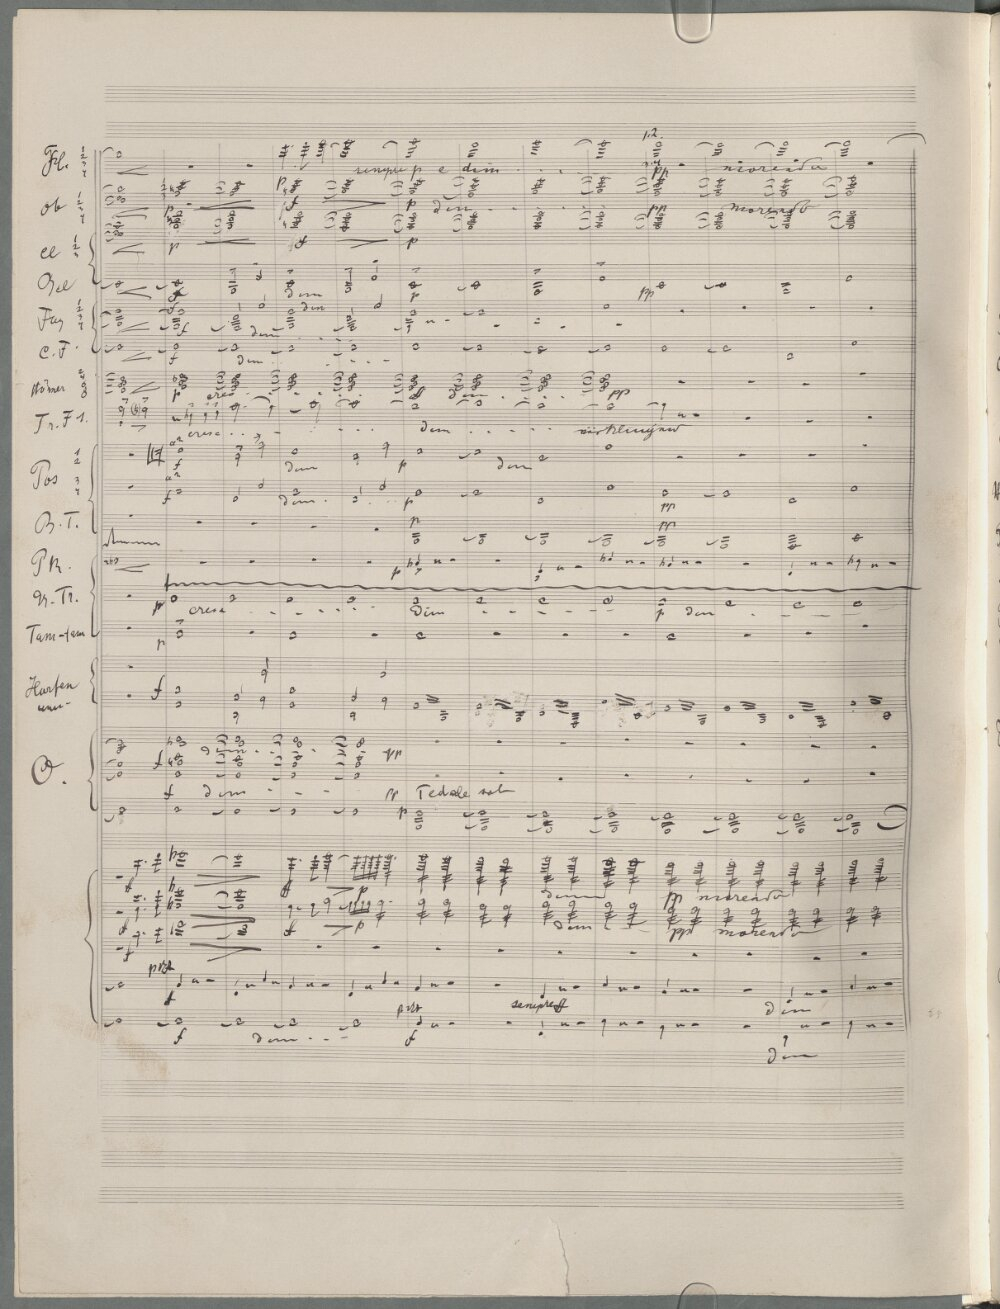 1.2.
Fl. 1 2 3 4
sempre p e dim . . . . . pp morendo
ob 1 2 3 4
p f p dim . . . . . pp morendo
cl 1 2 3
p f p
f dim p pp
Fag 1 2 3 4
f dim
f dim . . .
C.F.
f dim . . .
Hörner
p cresc . . . dim . . . pp
Tr. F 1.
cresc . . . . . . dim . . . . . verklingend
Pos 1 2 3 4
a2
f dim p dim
a2
f dim . . . p pp
B.T.
p pp
PK.
p
Kl. Tr.
p cresc . . . . . . Dim . . . . . p dim
Tam-tam
p
Harfen
f
O.
f dim . . . pp
f dim - - - pp Pedale sol
p
f f p dim pp morendo
f f p dim pp morendo
f
pizz
f sempre ff dim
pizz
f dim - - - f
dim